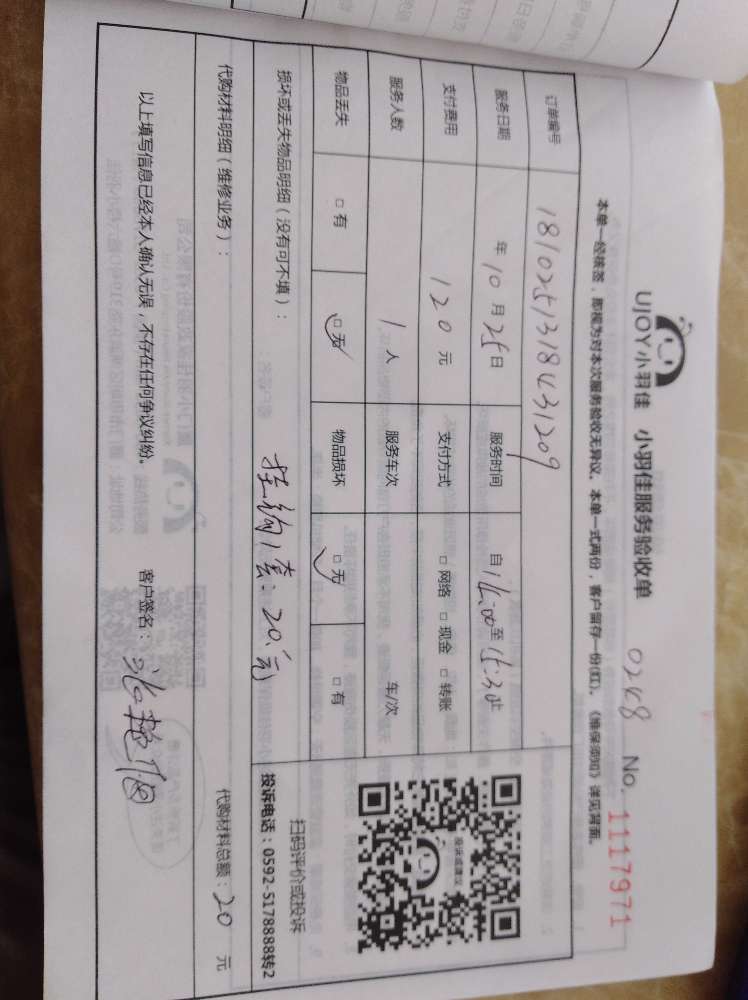 UJOY小羽佳 小羽佳服务验收单 0248 No. 1117971
本单一经核签，即视为对本次服务验收无异议。本单一式两份，客户留存一份(红)。《维保须知》详见背面。
订单编号 1810251318431209
服务日期 年 10 月 25 日 服务时间 自 14:00 至 15:30 止
支付费用 120 元 支付方式 □ 网络 □ 现金 □ 转账
服务人数 1 人 服务车次 车/次
物品丢失 □ 有 □ 无 物品损坏 □ 无 □ 有
投诉或建议
扫码评价或投诉
投诉电话：0592-5178888转2
损坏或丢失物品明细（没有可不填）：
挂钩1套：20元
代购材料明细（维修业务）： 代购材料总额：20 元
以上填写信息已经本人确认无误，不存在任何争议纠纷。 客户签名：